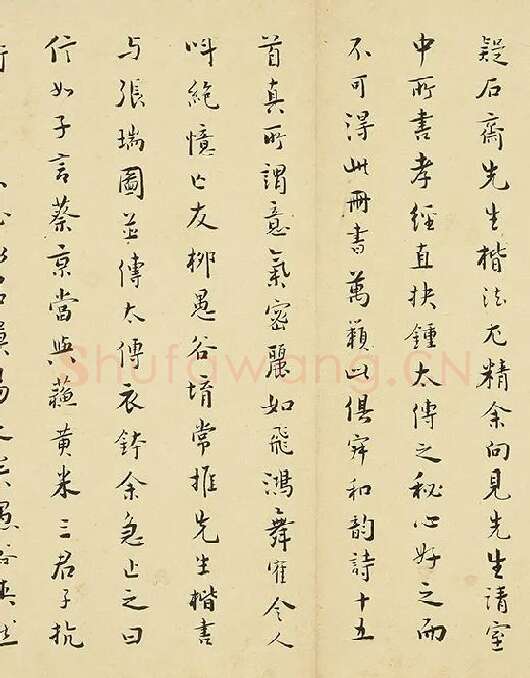 疑石齋先生楷法尤精余向見先生請室
中所書孝經直抉鍾太傅之秘心好之而
不可得此冊書萬籟此俱寂和韵詩十五
首真所謂意氣密麗如飛鴻舞隺令人
叫絶憶亡友柳愚谷堉常推先生楷書
与張瑞圖並傳太傅衣鉢余急止之曰
信如子言蔡京當與蘇黃米三君子抗
Shufawang.CN